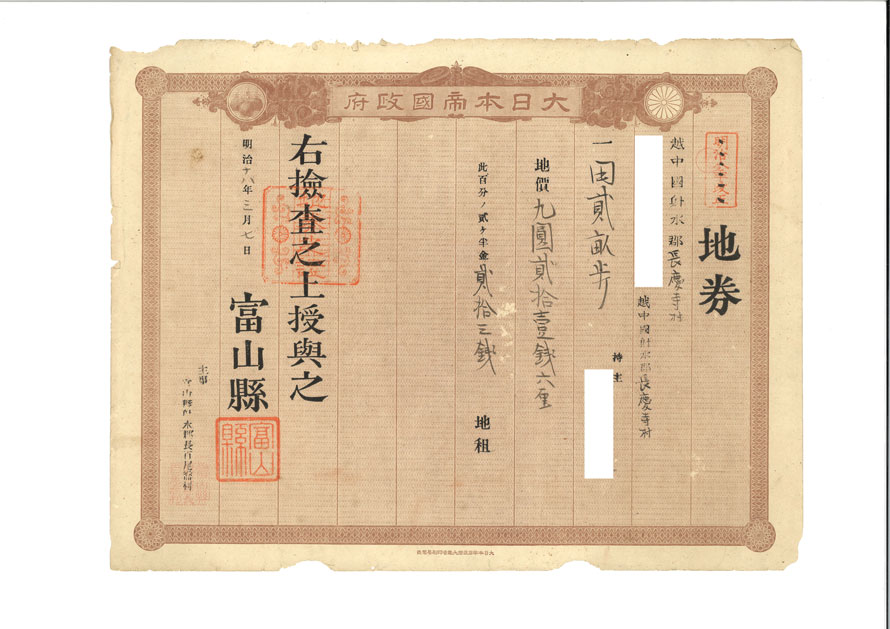 大日本帝國政府
地券
越中國射水郡長慶寺村
一田貳畝歩
越中國射水郡長慶寺村
持主
地價九圓貳拾壹錢六厘
此百分ノ貳ヶ半金貳拾三錢 地租
右撿査之上授與之
明治十八年三月七日
富山縣
富山縣
主事
富山縣射水郡長